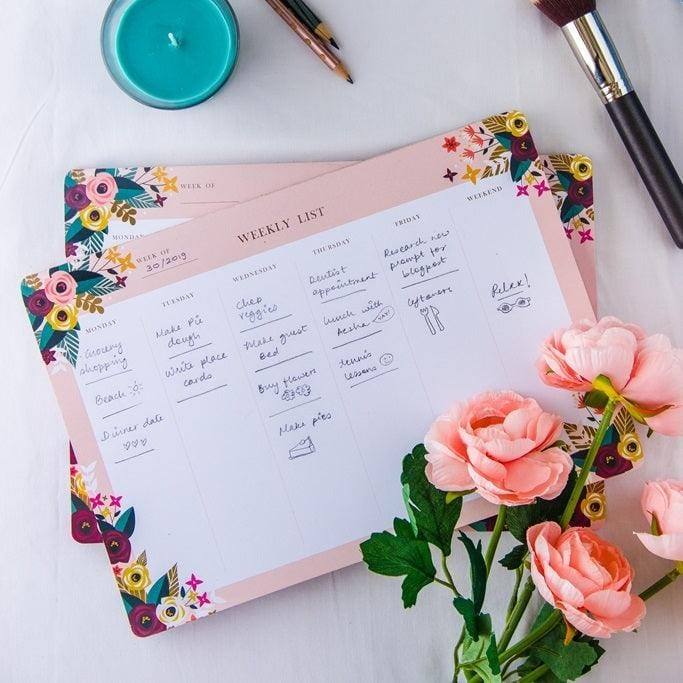 WEEK OF
MONDAY
WEEKLY LIST
WEEK OF
30/2019
MONDAY
Grocery
shopping
Beach
Dinner date
TUESDAY
Make Pie
dough
Write place
cards
WEDNESDAY
Chop
veggies
Make guest
Bed
Buy flowers
Make pies
THURSDAY
Dentist
appointment
Lunch with
Aesha YAY!
tennis
lessons
FRIDAY
Research new
prompt for
blogpost
Leftovers
WEEKEND
Relax!